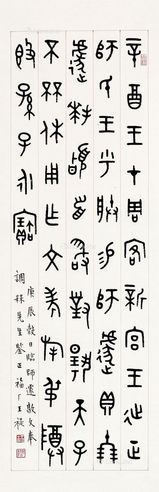 辛酉王才周客新宮王𢓊正
師氏王乎師朕易師遽貝十朋
遽拜𩒨首敢對揚天子
不㔻休用乍文考旄叔尊
𣪘孫子永寶
庚辰穀日臨師遽𣪘文奉
調梅先生鑒正福厂王禔